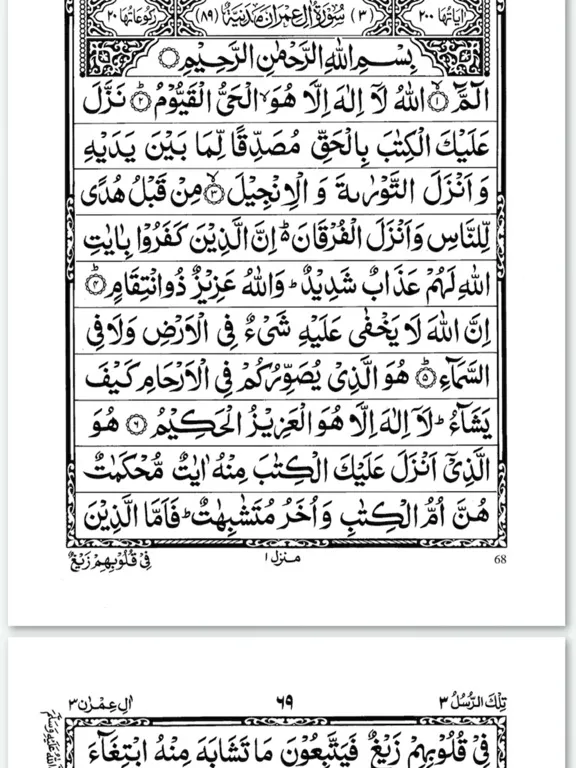 اٰيَاتُهَا ٢٠٠ (٣) سُوْرَةُ اٰلِ عِمْرٰنَ مَدَنِيَّةٌ (٨٩) رُكُوْعَاتُهَا ٢٠
بِسْمِ اللّٰهِ الرَّحْمٰنِ الرَّحِيْمِ
الٓمَّٓ ۙ﴿١﴾ اللّٰهُ لَاۤ اِلٰهَ اِلَّا هُوَ ۙ الْحَيُّ الْقَيُّوْمُ ؕ﴿٢﴾ نَزَّلَ
عَلَيْكَ الْكِتٰبَ بِالْحَقِّ مُصَدِّقًا لِّمَا بَيْنَ يَدَيْهِ
وَ اَنْزَلَ التَّوْرٰىةَ وَ الْاِنْجِيْلَ ۙ﴿٣﴾ مِنْ قَبْلُ هُدًى
لِّلنَّاسِ وَ اَنْزَلَ الْفُرْقَانَ ؕ۬ اِنَّ الَّذِيْنَ كَفَرُوْا بِاٰيٰتِ
اللّٰهِ لَهُمْ عَذَابٌ شَدِيْدٌ ؕ وَاللّٰهُ عَزِيْزٌ ذُوانْتِقَامٍ ؕ﴿٤﴾
اِنَّ اللّٰهَ لَا يَخْفٰى عَلَيْهِ شَيْءٌ فِي الْاَرْضِ وَلَا فِي
السَّمَآءِ ؕ﴿٥﴾ هُوَ الَّذِيْ يُصَوِّرُكُمْ فِي الْاَرْحَامِ كَيْفَ
يَشَآءُ ؕ لَاۤ اِلٰهَ اِلَّا هُوَ الْعَزِيْزُ الْحَكِيْمُ ﴿٦﴾ هُوَ
الَّذِيْۤ اَنْزَلَ عَلَيْكَ الْكِتٰبَ مِنْهُ اٰيٰتٌ مُّحْكَمٰتٌ
هُنَّ اُمُّ الْكِتٰبِ وَ اُخَرُ مُتَشٰبِهٰتٌ ؕ فَاَمَّا الَّذِيْنَ
68 منزل ١ فِيْ قُلُوْبِهِمْ زَيْغٌ
تِلْكَ الرُّسُلُ ٣ ٦٩ اٰلِ عِمْرٰن ٣
فِيْ قُلُوْبِهِمْ زَيْغٌ فَيَتَّبِعُوْنَ مَا تَشَابَهَ مِنْهُ ابْتِغَآءَ